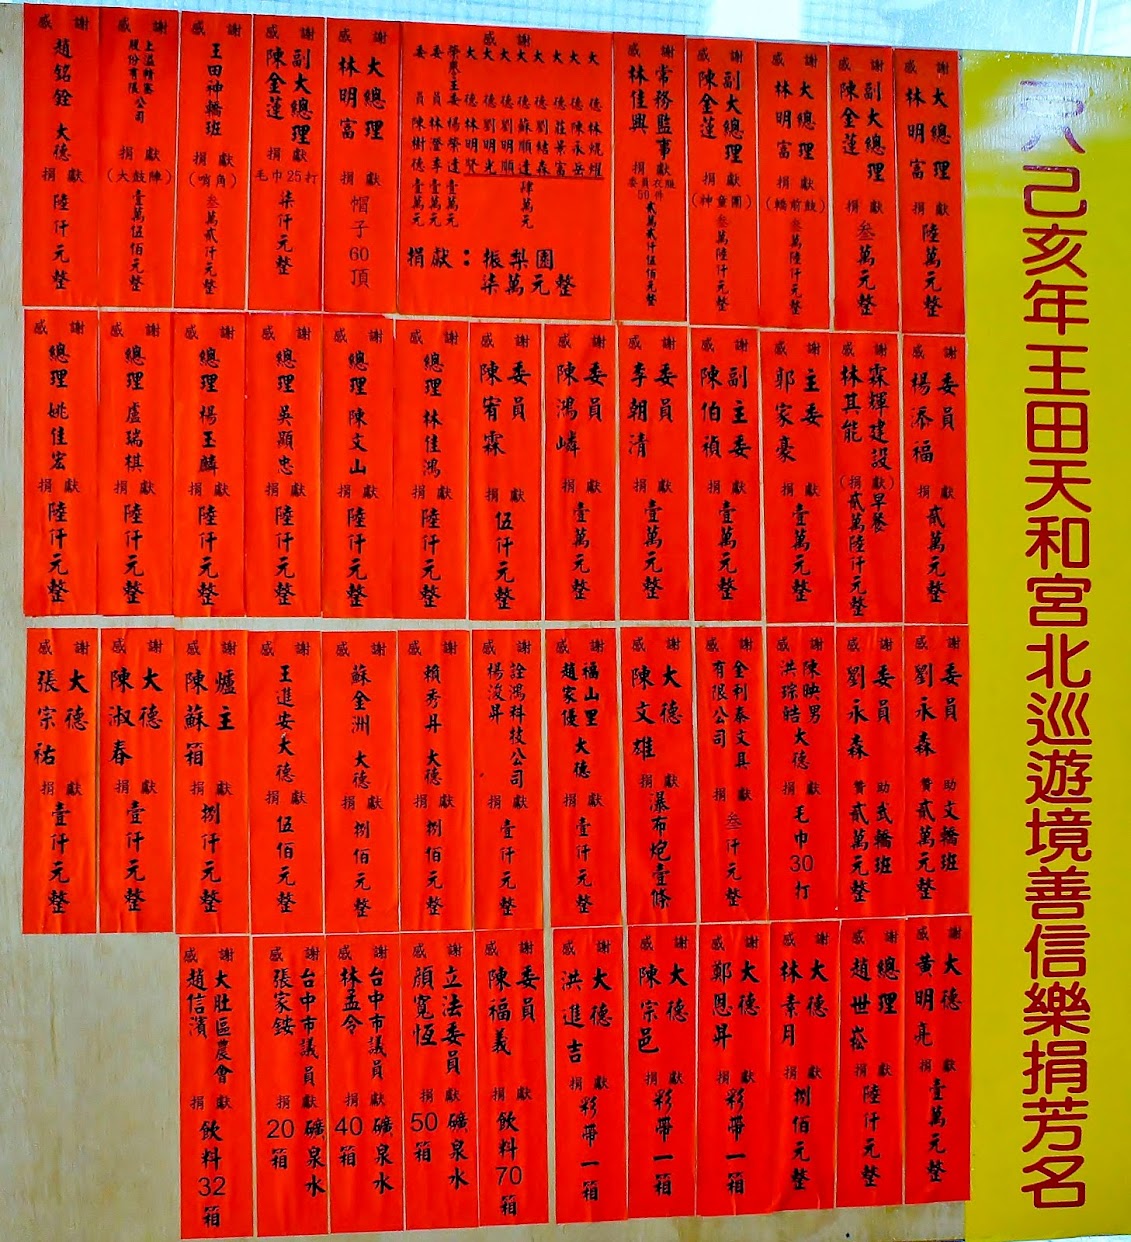 己亥年王田天和宮北巡遊境善信樂捐芳名
感謝
大總理
林明富
捐獻
陸萬元整
感謝
副大總理
陳金蓮
捐獻
叁萬元整
感謝
大總理
林明富
捐獻
(轎前鼓)
叁萬陸仟元整
感謝
副大總理
陳金蓮
捐獻
(神童團)
叁萬陸仟元整
感謝
常務監事
林佳興
捐獻
50件
貳萬貳仟伍佰元整
感謝
大德林焜耀
大德陳永岳
大德莊景富
大德劉緒森
大德蘇順達
大德劉明順
大德劉明光
大德林明賢
肆萬元
榮譽主委楊榮達壹萬元
委員林澄李壹萬元
委員陳樹德壹萬元
捐獻：振梨園
柒萬元整
感謝
大總理
林明富
捐獻
帽子60頂
感謝
副大總理
陳金蓮
捐獻
毛巾25打
柒仟元整
感謝
王田神轎班
捐獻
(哨角)
叁萬貳仟元整
感謝
上溢精密
股份有限公司
捐獻
(大鼓陣)
壹萬伍佰元整
感謝
趙銘銓 大德
捐獻
陸仟元整
感謝
委員
楊添福
捐獻
貳萬元整
感謝
霖輝建設
林其能
(捐獻)
早餐
貳萬陸仟元整
感謝
主委
郭家豪
捐獻
壹萬元整
感謝
副主委
陳伯禎
捐獻
壹萬元整
感謝
委員
李朝清
捐獻
壹萬元整
感謝
委員
陳鴻嶙
捐獻
壹萬元整
感謝
委員
陳宥霖
捐獻
伍仟元整
感謝
總理 林佳鴻
捐獻
陸仟元整
感謝
總理 陳文山
捐獻
陸仟元整
感謝
總理 吳顯忠
捐獻
陸仟元整
感謝
總理 楊玉麟
捐獻
陸仟元整
感謝
總理 盧瑞棋
捐獻
陸仟元整
感謝
總理 姚佳宏
捐獻
陸仟元整
感謝
委員
劉永森
贊助
文轎班
貳萬元整
感謝
委員
劉永森
贊助
武轎班
貳萬元整
感謝
陳映男
洪琮皓 大德
捐獻
毛巾30打
感謝
金利泰文具
有限公司
捐獻
叁仟元整
感謝
大德
陳文雄
捐獻
瀑布炮壹條
感謝
福山里
趙家優 大德
捐獻
壹仟元整
感謝
詮鴻科技公司
楊浚昇
捐獻
壹仟元整
感謝
賴秀昇 大德
捐獻
捌佰元整
感謝
蘇金洲 大德
捐獻
捌佰元整
感謝
王進安大德
捐獻
伍佰元整
感謝
爐主
陳蘇箱
捐獻
捌仟元整
感謝
大德
陳淑春
捐獻
壹仟元整
感謝
大德
張宗祐
捐獻
壹仟元整
感謝
大德
黃明亮
捐獻
壹萬元整
感謝
總理
趙世崧
捐獻
陸仟元整
感謝
大德
林素月
捐獻
捌佰元整
感謝
大德
鄭恩昇
捐獻
彩帶一箱
感謝
大德
陳宗邑
捐獻
彩帶一箱
感謝
大德
洪進吉
捐獻
彩帶一箱
感謝
委員
陳福義
捐獻
飲料70箱
感謝
立法委員
顏寬恆
捐獻
礦泉水
50箱
感謝
台中市議員
林孟令
捐獻
礦泉水
40箱
感謝
台中市議員
張家銨
捐獻
礦泉水
20箱
感謝
大肚區農會
趙信濱
捐獻
飲料32箱